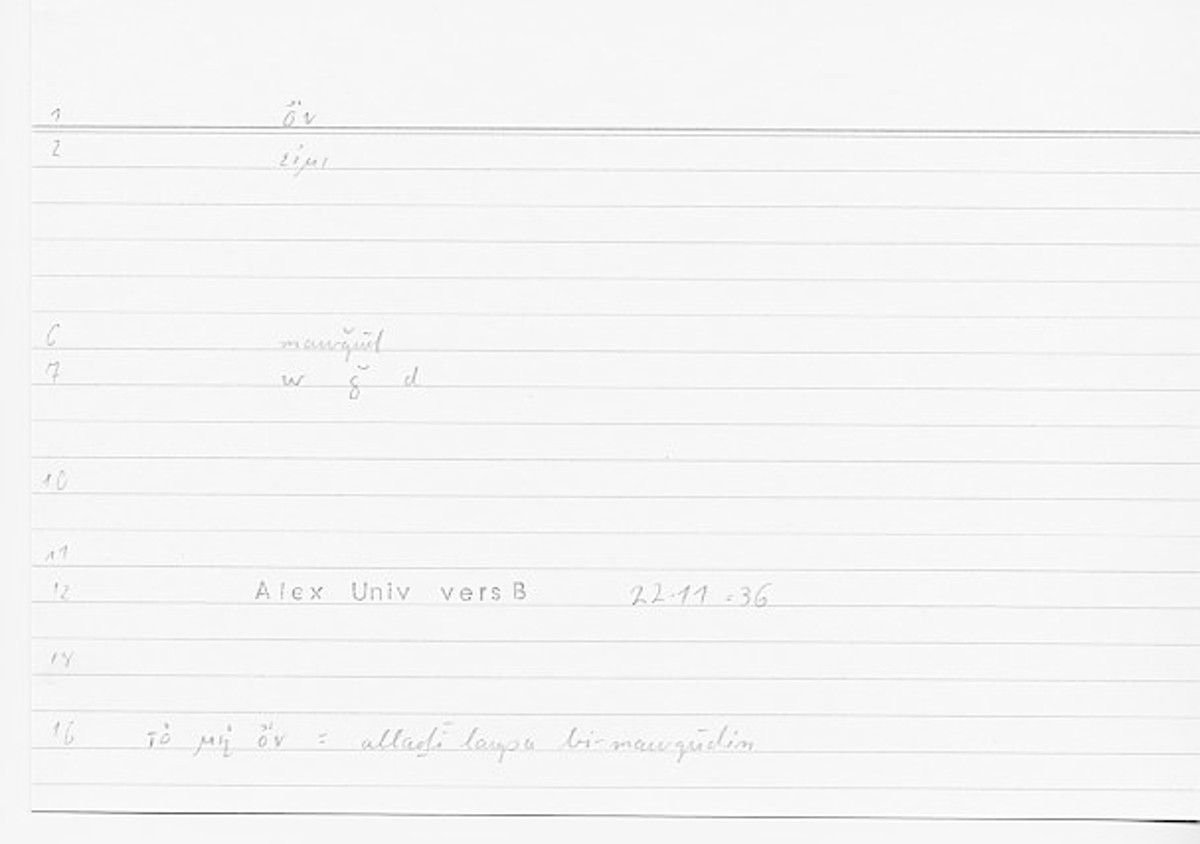 1 ὄν
2 εἰμι
6 mawǧūd
7 w ǧ d
10
11
12 Alex Univ vers B 22.11.36
14
16 τὸ μὴ ὄν = allaḏī laysa bi-mawǧūdin